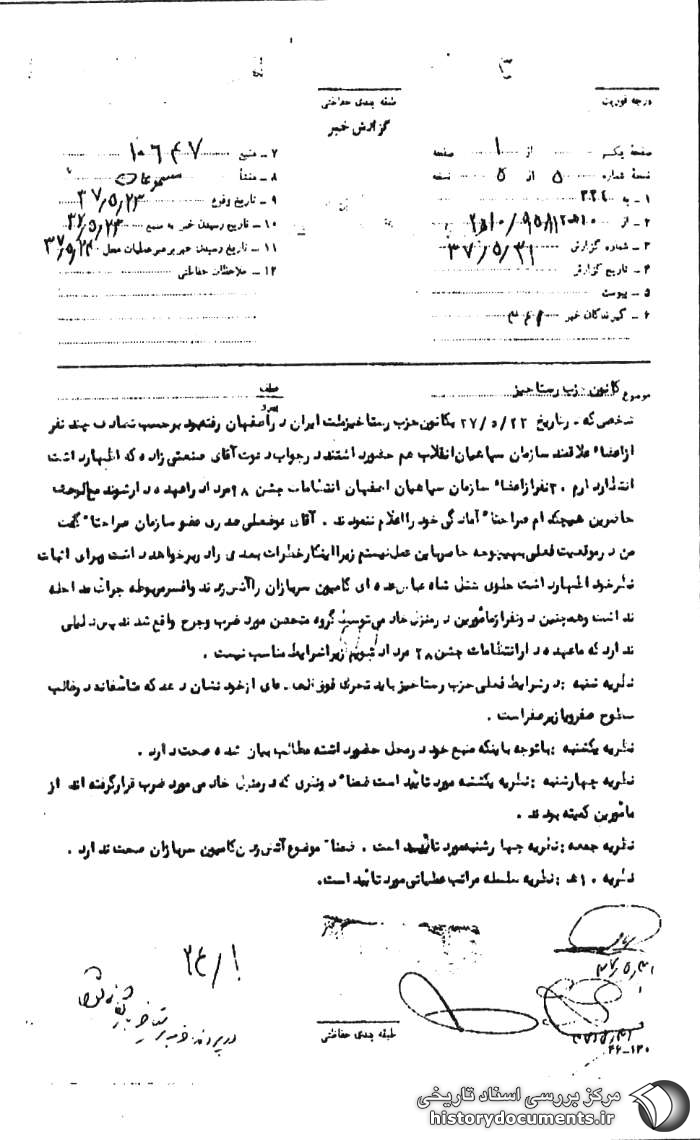 درجه فوریت
طبقه بندی حفاظتی
گزارش خبر
صفحه یک از ۱ صفحه
نسخه شماره ۵ از ۵ نسخه
۱ - به ۳۳۴
۲ - از ۱۰ه‍۱۲
۳ - شماره گزارش
۴ - تاریخ گزارش ۳۷/۵/۳۱
۵ - پیوست
۶ - گیرندگان خبر
۷ - منبع ۱۰۶۴۷
۸ - منشأ مسموعات
۹ - تاریخ وقوع ۳۷/۵/۲۳
۱۰ - تاریخ رسیدن خبر به منبع ۳۷/۵/۲۳
۱۱ - تاریخ رسیدن خبر به رهبر عملیات محل ۳۷/۵/۲۴
۱۲ - ملاحظات حفاظتی
موضوع کانون حزب رستاخیز
عطف
پیرو
شخصی که در تاریخ ۲۳/۵/۳۷ بکانون حزب رستاخیز ملت ایران در اصفهان رفته بود برحسب تصادف چند نفر
از اعضاء علاقمند سازمان سپاهیان انقلاب هم حضور داشتند در جواب دعوت آقای صنعتی زاده که اظهار داشت
انتظار دارم ۲۰ نفر از اعضاء سازمان سپاهیان اصفهان انتظامات جشن ۲۸ مرداد را عهده دار شوند مع الوصف
حاضرین هیچکدام صراحتاً آمادگی خود را اعلام ننمودند . آقای عوضعلی صدری عضو سازمان صراحتاً گفت
من در موقعیت فعلی بهیچوجه حاضر باین عمل نیستم زیرا اینکار خطرات بعدی را دربر خواهد داشت و برای اثبات
نظر خود اظهار داشت جلوی هتل شاه عباس عده ای کامیون سربازان را آتش زدند و افسر مربوطه جرات مداخله
نداشت و همچنین دو نفر از مأمورین در منزل خادمی توسط گروه متحصن مورد ضرب و جرح واقع شدند پس دلیلی
ندارد که ما عهده دار انتظامات جشن ۲۸ مرداد شویم زیرا شرایط مناسب نیست .
نظریه شنبه : در شرایط فعلی حزب رستاخیز باید تحرک فوق العاده ای از خود نشان دهد که متأسفانه در غالب
سطوح صفر و یا زیر صفر است .
نظریه یکشنبه : باتوجه باینکه منبع خود در محل حضور داشته مطالب بیان شده صحت دارد .
نظریه چهارشنبه : نظریه یکشنبه مورد تأئید است ضمناً دو نفری که در منزل خادمی مورد ضرب قرار گرفته اند از
مأمورین کمیته بودند .
نظریه جمعه : نظریه چهارشنبه مورد تأئید است . ضمناً موضوع آتش زدن کامیون سربازان صحت ندارد .
نظریه ۱۰ ه‍ : نظریه سلسله مراتب عملیاتی مورد تأئید است.
۳۷/۵/۳۱
طبقه بندی حفاظتی
۳۶-۱۳۰
مرکز بررسی اسناد تاریخی
historydocuments.ir